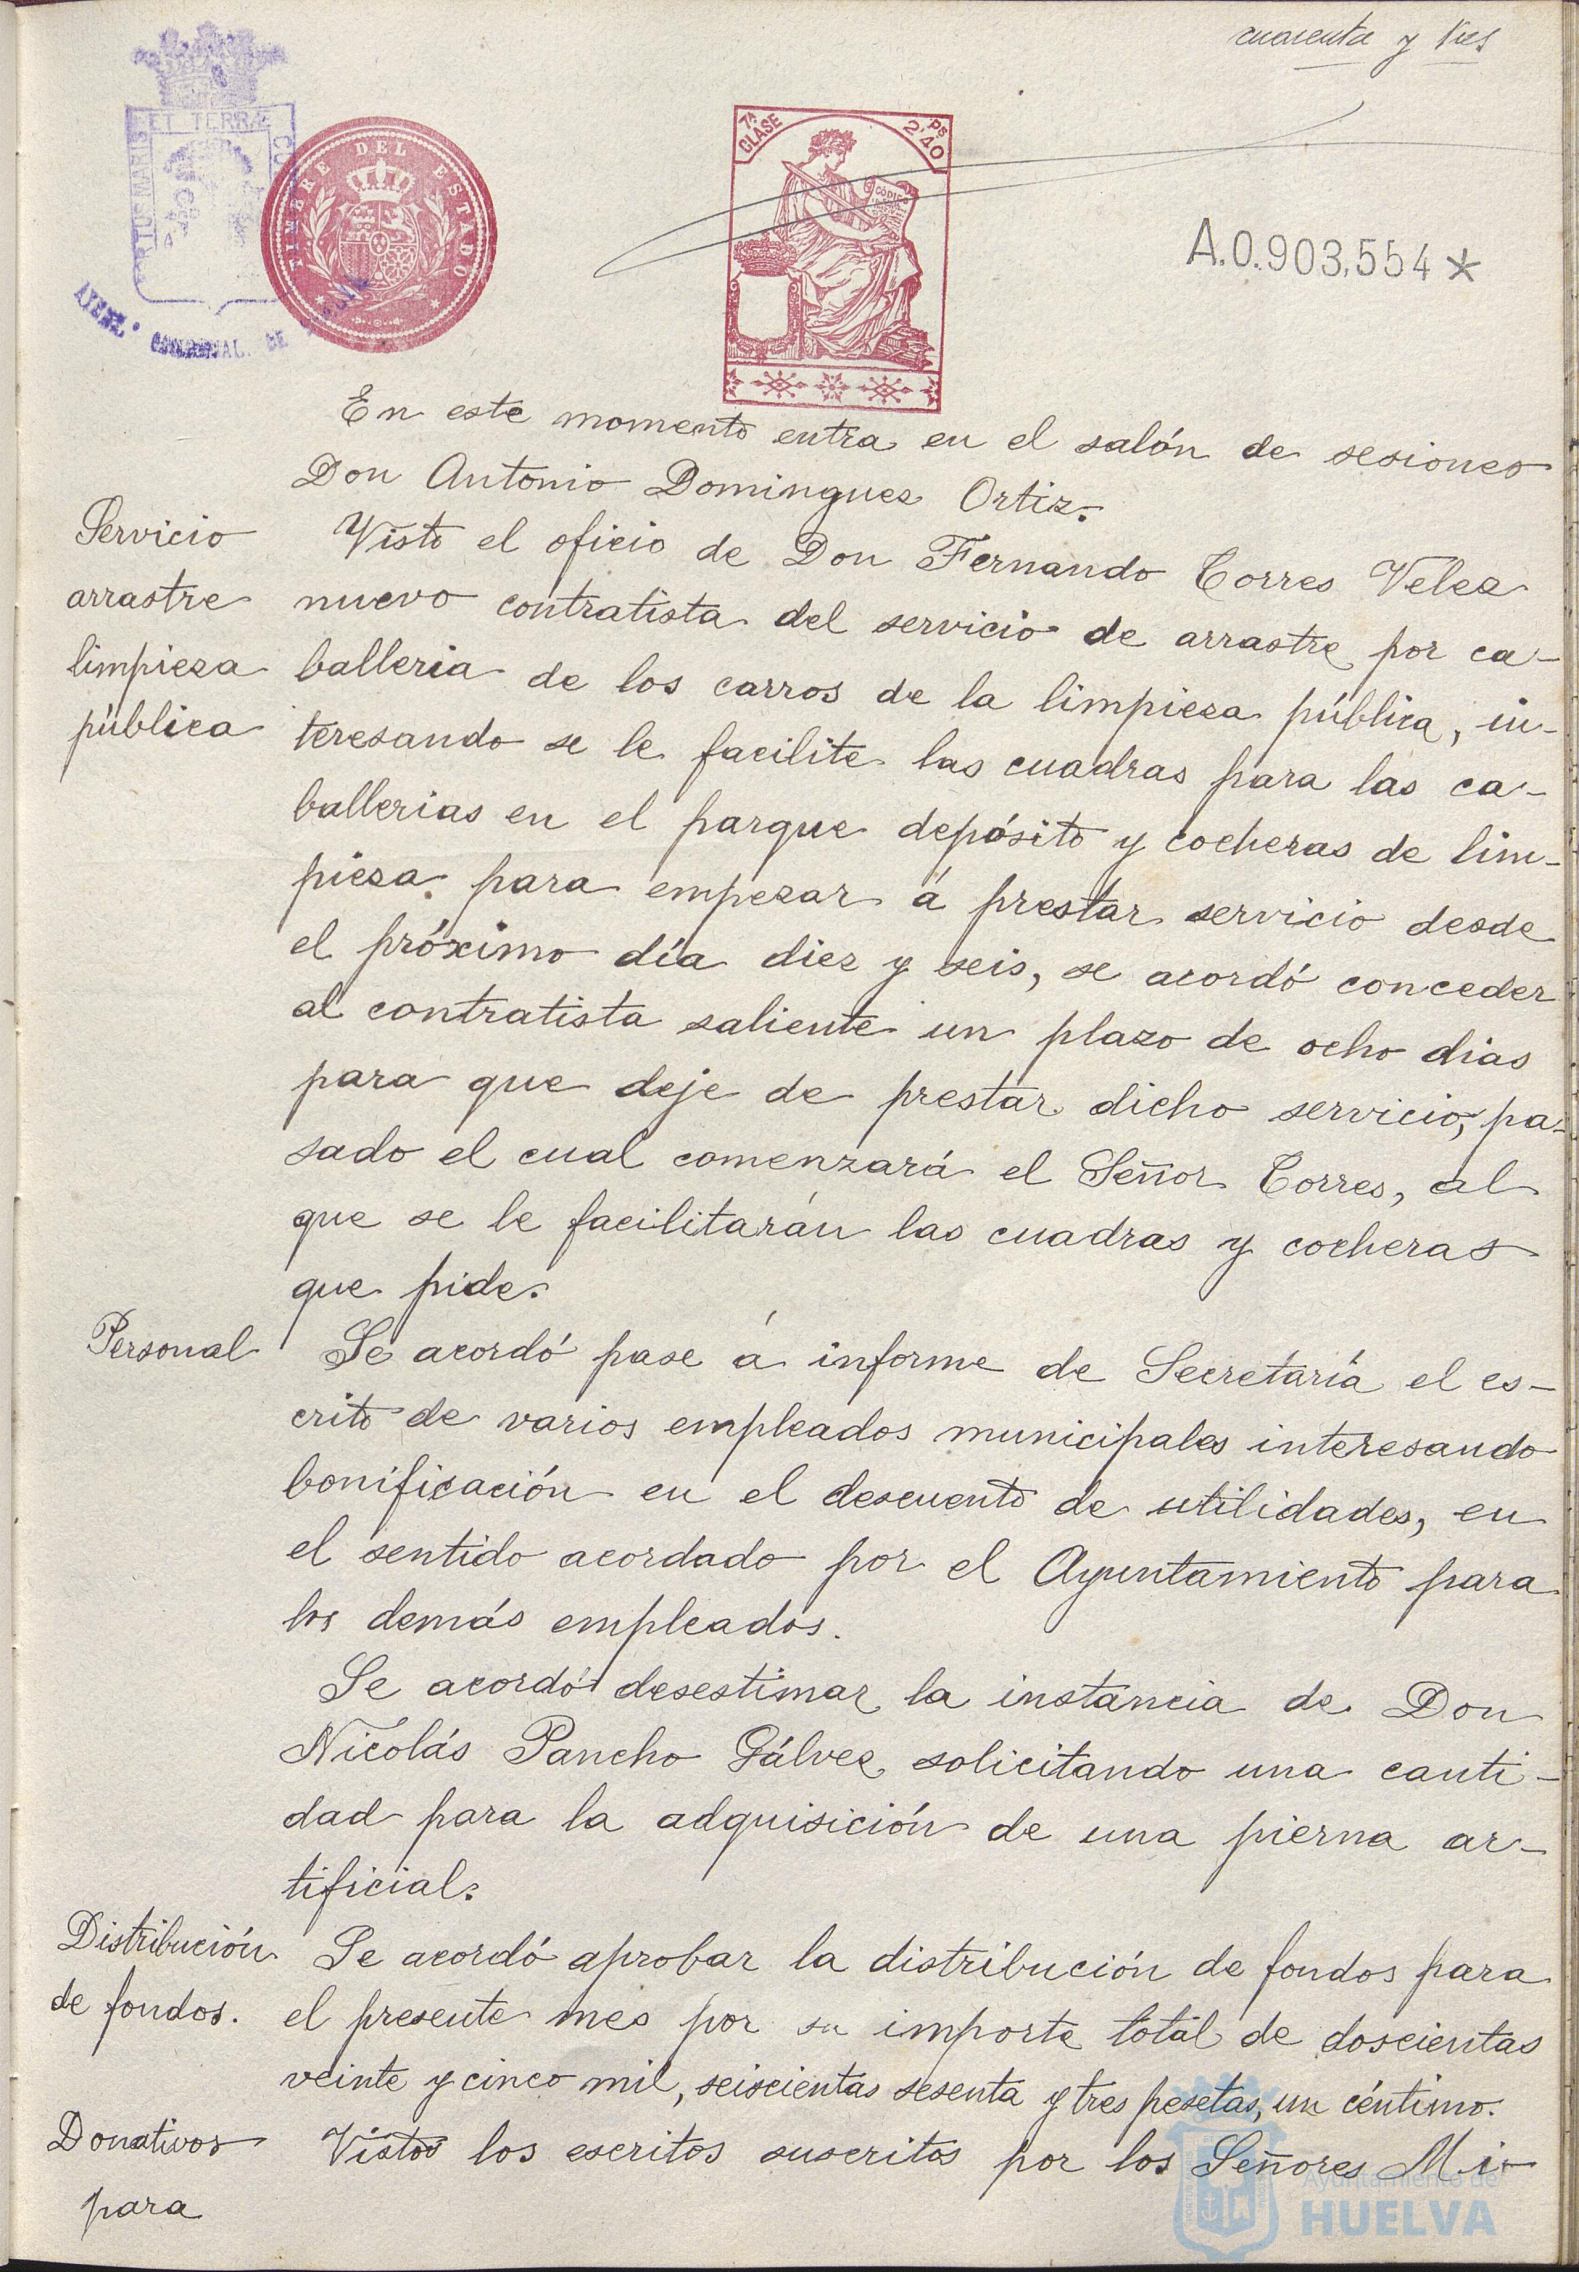 cuarenta y tres
ET TERRÆ
TIMBRE DEL ESTADO
7ª CLASE
2'40 PS
A.0.903,554*
En este momento entra en el salón de sesiones
Don Antonio Dominguez Ortiz.
Servicio
arrastre
limpieza
pública
Visto el oficio de Don Fernando Torres Velez
nuevo contratista del servicio de arrastre por ca-
balleria de los carros de la limpieza pública, in-
teresando se le facilite las cuadras para las ca-
ballerias en el parque depósito y cocheras de lim-
pieza para empezar á prestar servicio desde
el próximo día diez y seis, se acordó conceder
al contratista saliente un plazo de ocho dias
para que deje de prestar dicho servicio, pa-
sado el cual comenzará el Señor Torres, al
que se le facilitarán las cuadras y cocheras
que pide.
Personal
Se acordó pase á informe de Secretaría el es-
crito de varios empleados municipales interesando
bonificación en el descuento de utilidades, en
el sentido acordado por el Ayuntamiento para
los demás empleados.
Se acordó desestimar la instancia de Don
Nicolás Pancho Gálvez solicitando una canti-
dad para la adquisición de una pierna ar-
tificial.
Distribución
de fondos.
Se acordó aprobar la distribución de fondos para
el presente mes por su importe total de doscientas
veinte y cinco mil, seiscientas sesenta y tres pesetas, un céntimo.
Donativos
para
Vistos los escritos suscritos por los Señores Mi-
Ayuntamiento de
HUELVA